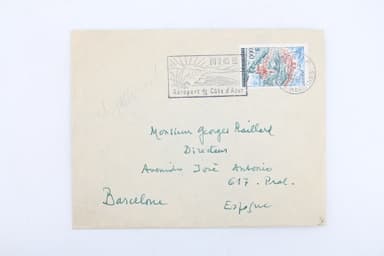 Aéroport de Côte d'Azur
Monsieur Georges Maillard
Directeur
Avenida José Antonio
617 - Pral.
Barcelone
Espagne